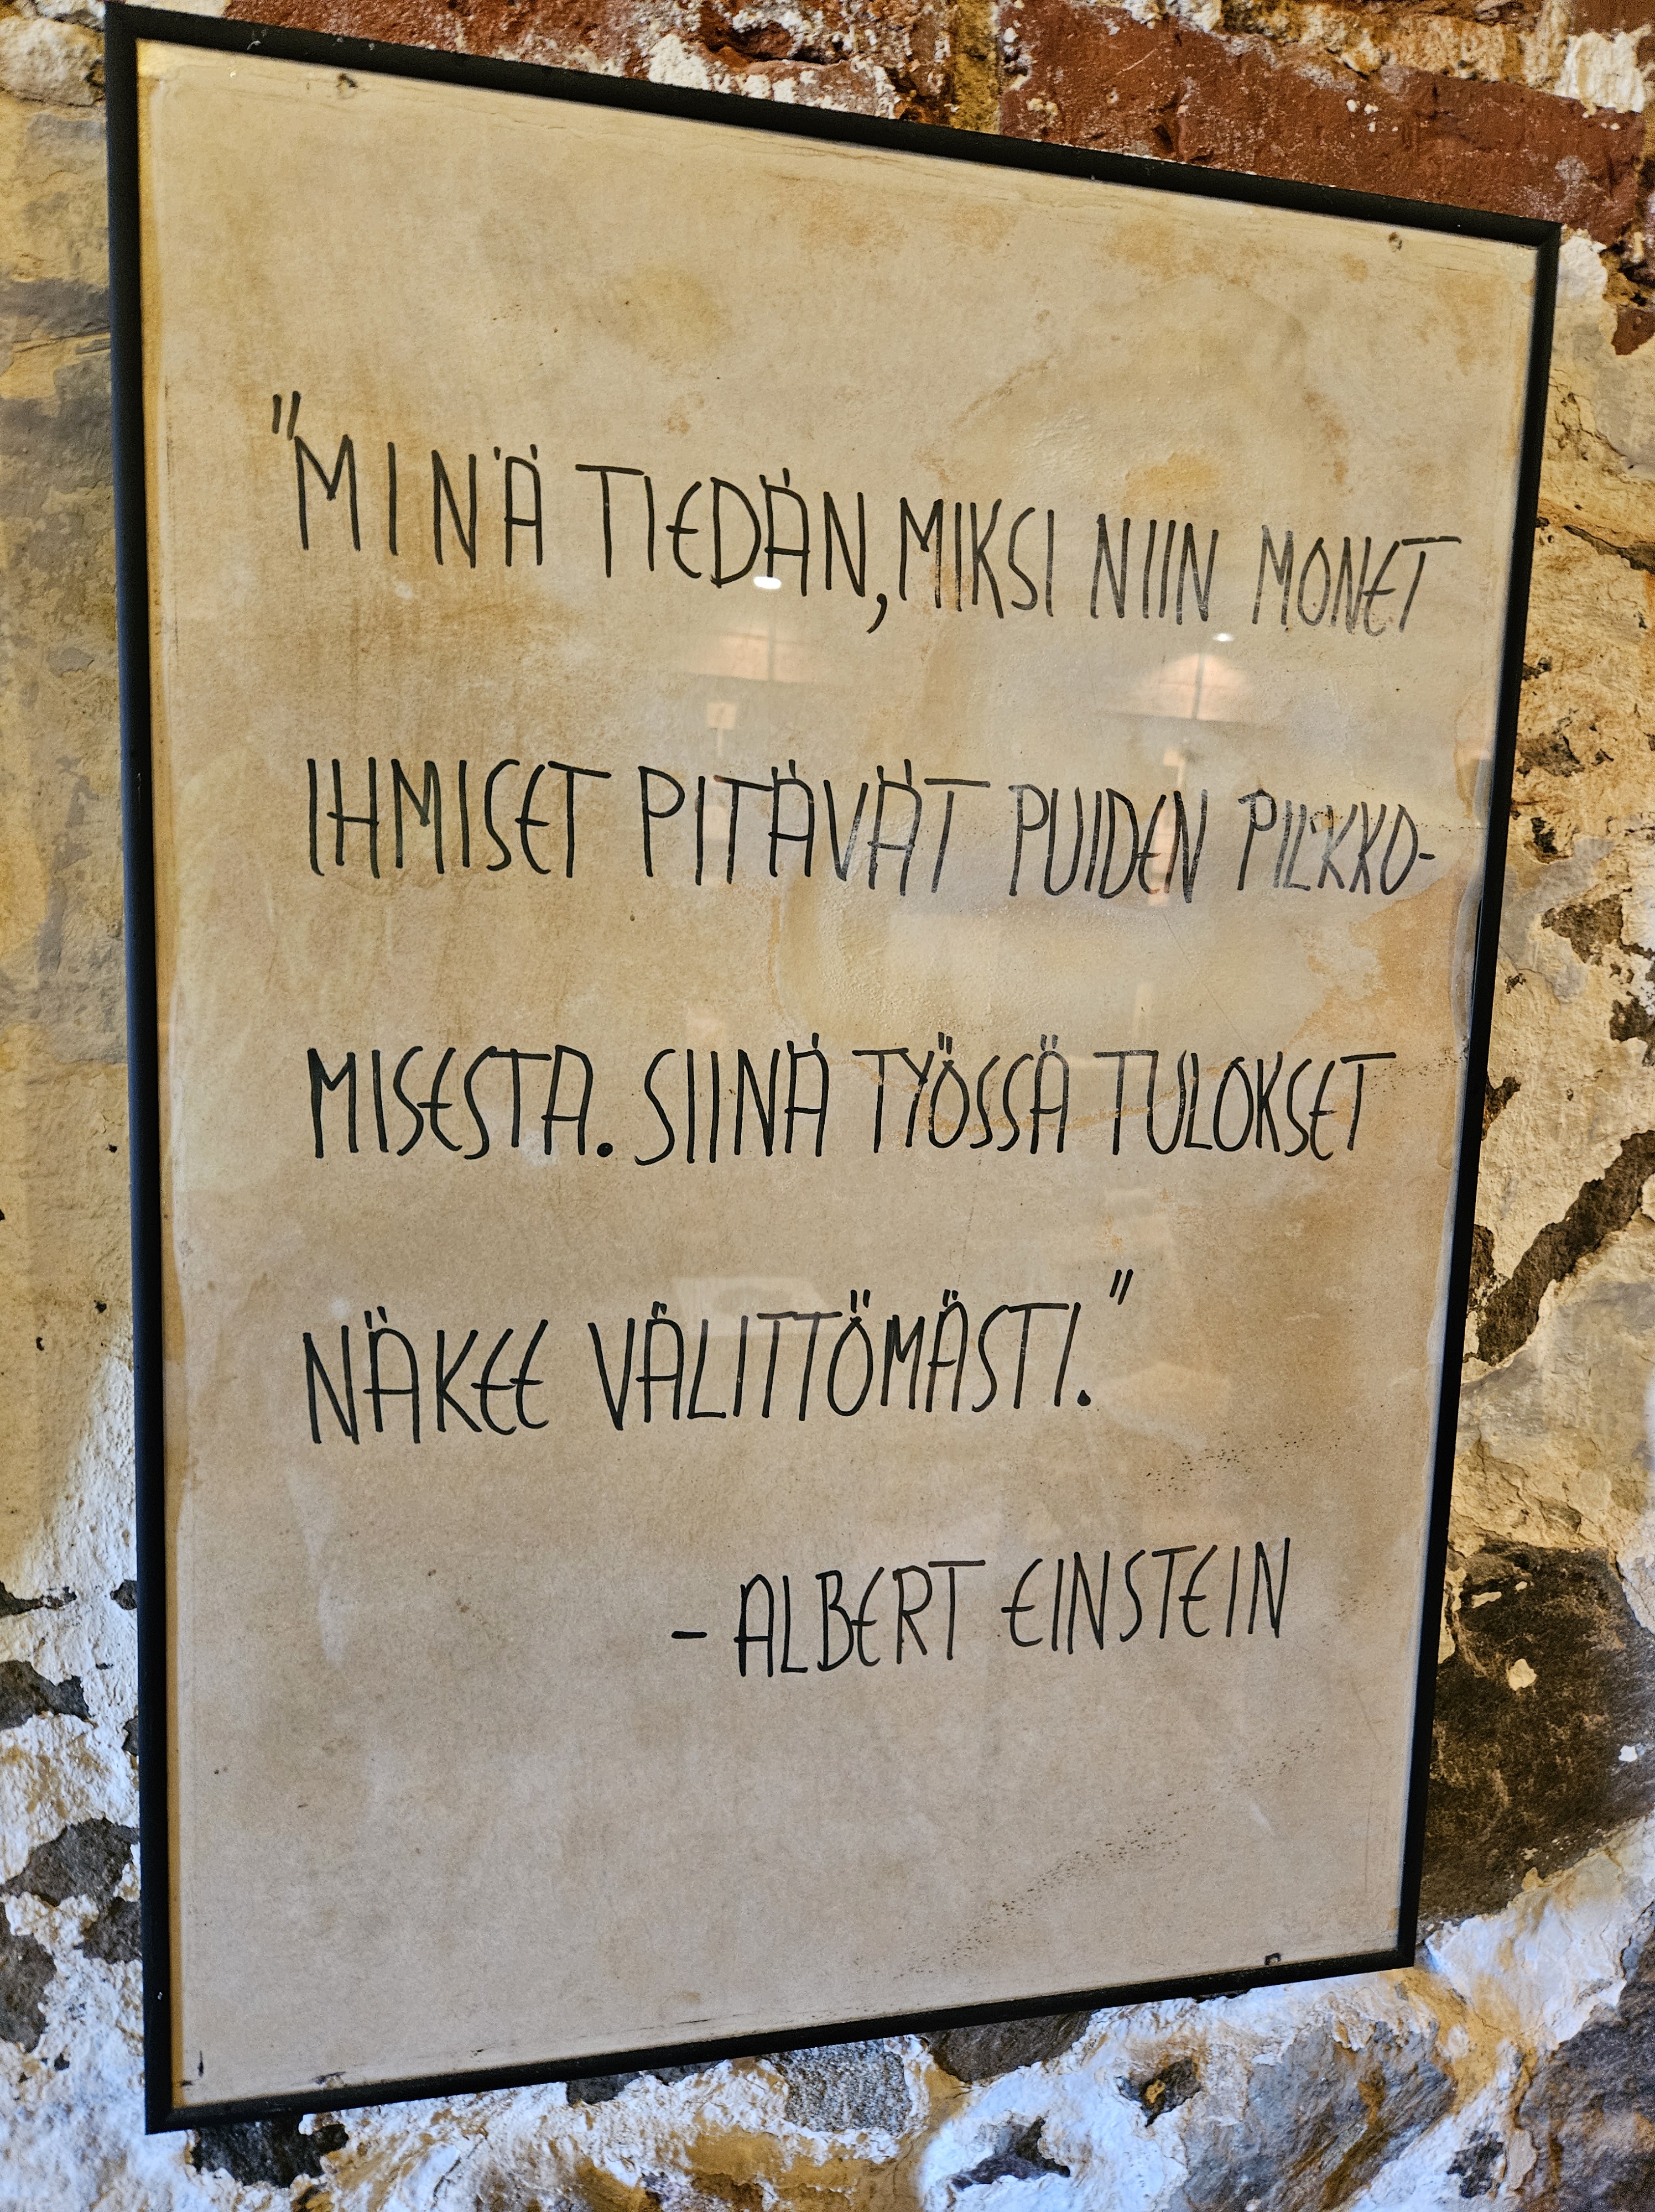 "MINÄ TIEDÄN, MIKSI NIIN MONET
IHMISET PITÄVÄT PUIDEN PILKKO-
MISESTA. SIINÄ TYÖSSÄ TULOKSET
NÄKEE VÄLITTÖMÄSTI."
- ALBERT EINSTEIN